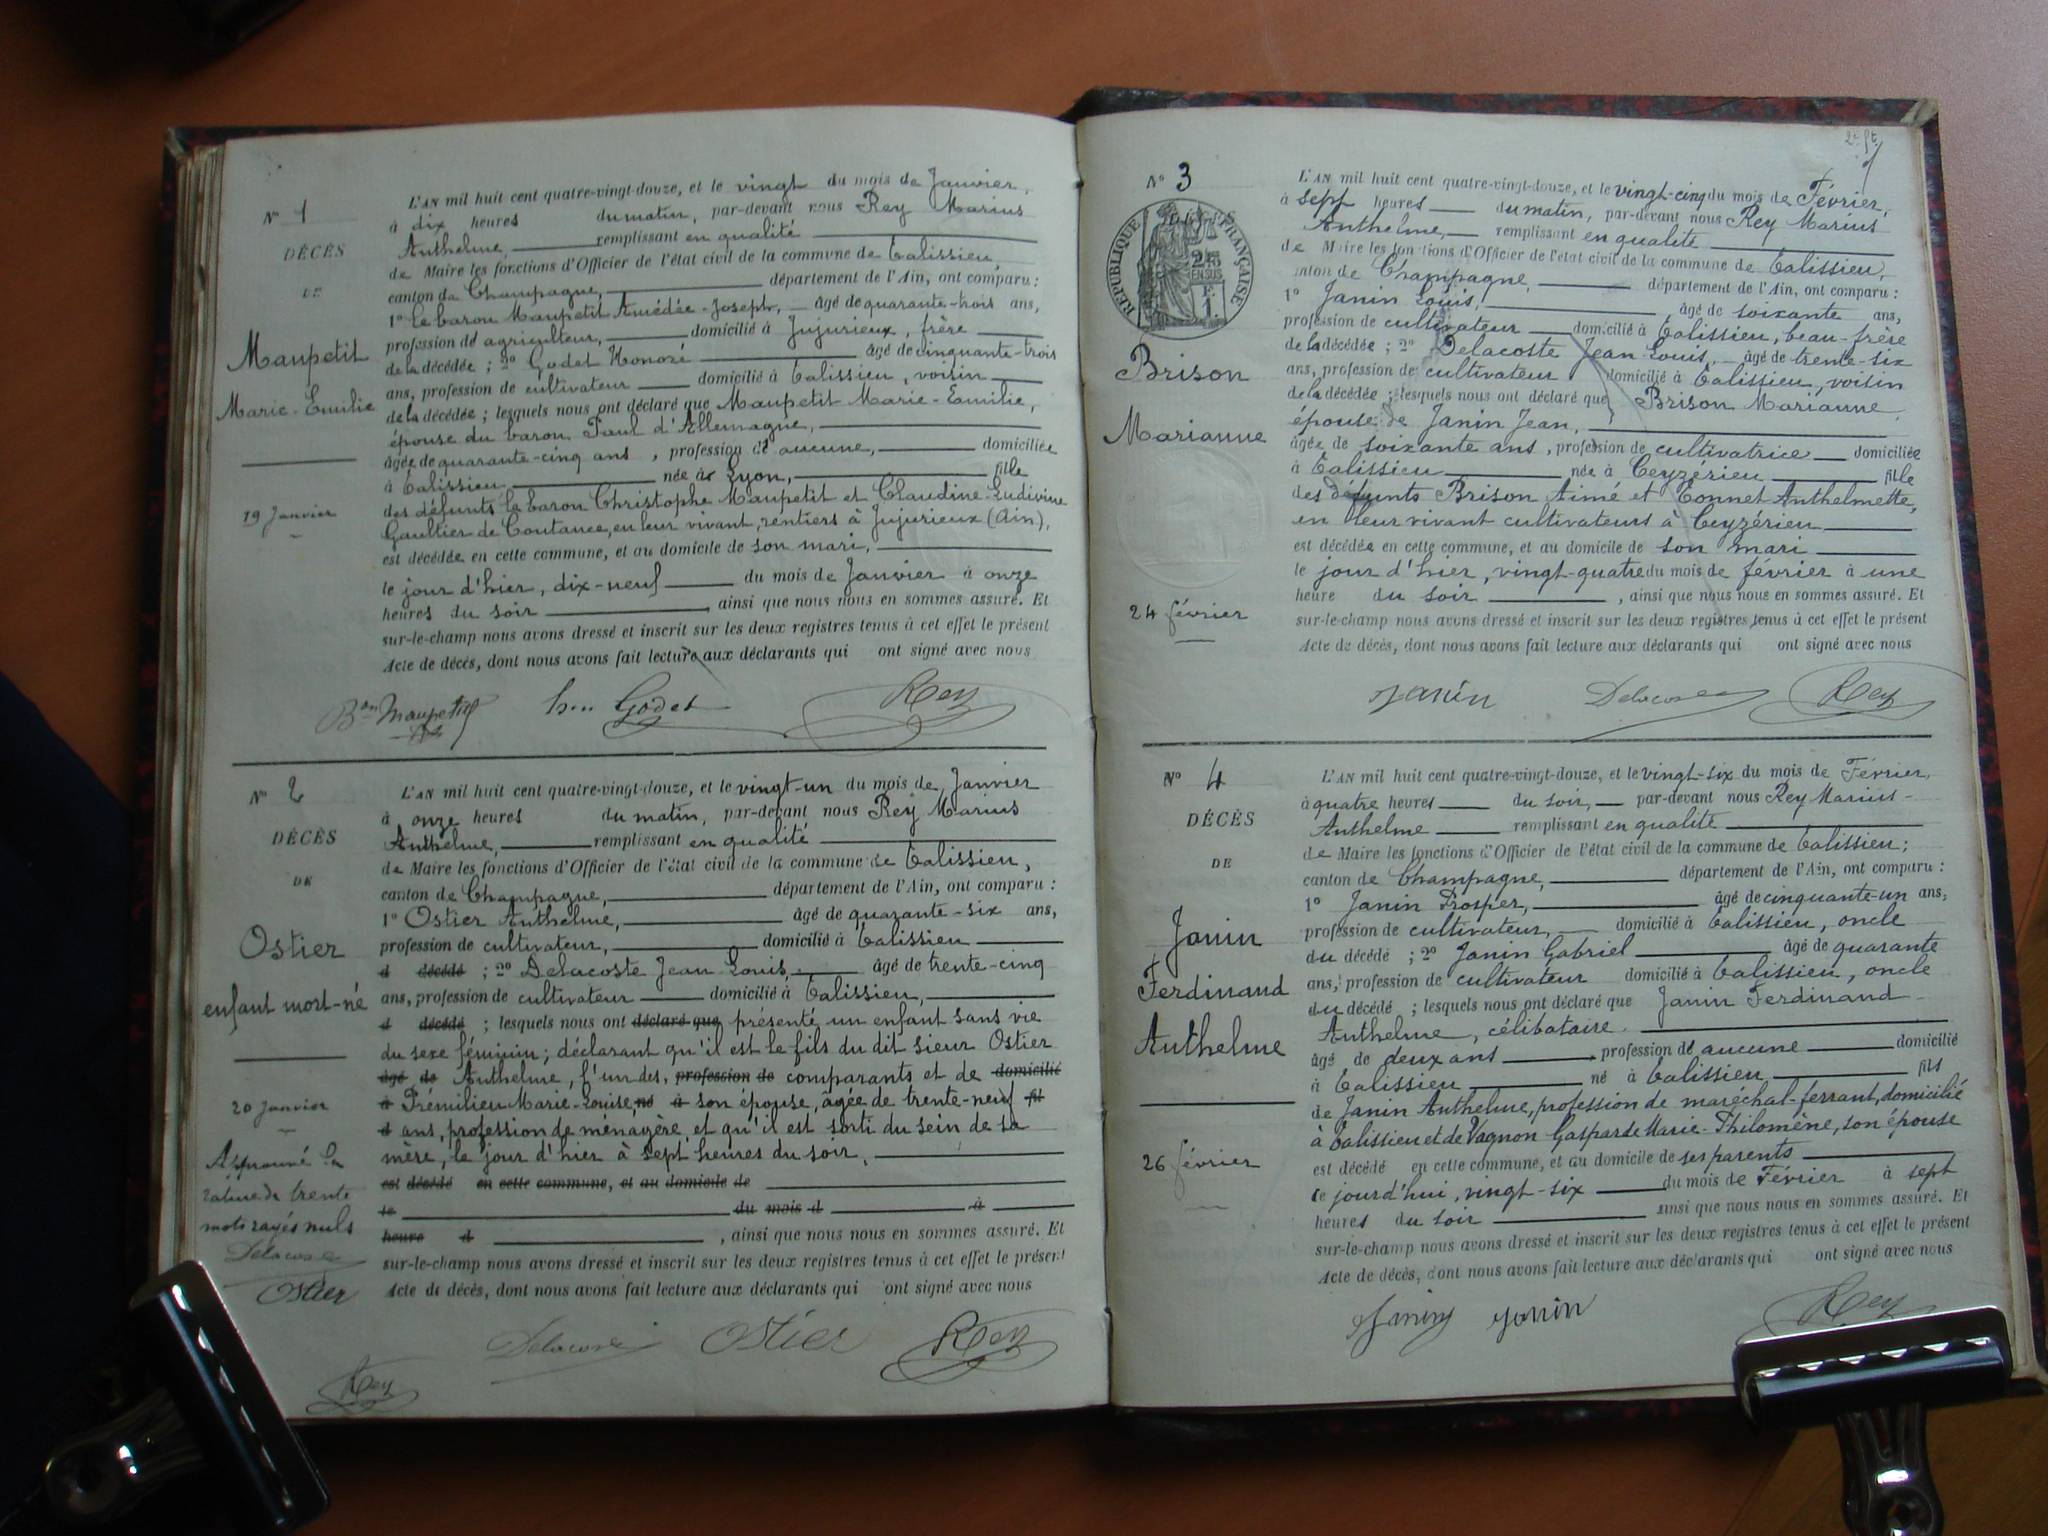 N° 1
DÉCÈS
DE
Maupetit
Marie-Emilie
19 Janvier
L'AN mil huit cent quatre-vingt-douze, et le vingt du mois de Janvier,
à dix heures du matin, par-devant nous Rey Marius
Anthelme, remplissant en qualité
de Maire les fonctions d'Officier de l'état civil de la commune de Talissieu,
canton de Champagne, département de l'Ain, ont comparu :
1° le baron Maupetit Amédée-Joseph, âgé de quarante-trois ans,
profession de agriculteur, domicilié à Jujurieux, frère
de la décédée ; 2° Godet Honoré âgé de cinquante-trois
ans, profession de cultivateur domicilié à Talissieu, voisin
de la décédée ; lesquels nous ont déclaré que Maupetit Marie-Emilie,
épouse du baron Paul d'Allemagne,
âgée de quarante-cinq ans, profession de aucune, domiciliée
à Talissieu, née à Lyon, fille
des défunts le baron Christophe Maupetit et Claudine-Ludivine
Gaultier de Coutance, en leur vivant, rentiers à Jujurieux (Ain),
est décédée en cette commune, et au domicile de son mari,
le jour d'hier, dix-neuf du mois de Janvier à onze
heures du soir, ainsi que nous nous en sommes assuré. Et
sur-le-champ nous avons dressé et inscrit sur les deux registres tenus à cet effet le présent
Acte de décès, dont nous avons fait lecture aux déclarants qui ont signé avec nous
Bon Maupetit Godet Rey
N° 2
DÉCÈS
DE
Ostier
enfant mort-né
20 Janvier
Approuvé la
rature de trente
mots rayés nuls
Delacoste
Ostier
Rey
L'AN mil huit cent quatre-vingt-douze, et le vingt-un du mois de Janvier
à onze heures du matin, par-devant nous Rey Marius
Anthelme, remplissant en qualité
de Maire les fonctions d'Officier de l'état civil de la commune de Talissieu,
canton de Champagne, département de l'Ain, ont comparu :
1° Ostier Anthelme, âgé de quarante-six ans,
profession de cultivateur, domicilié à Talissieu
d décédé ; 2° Delacoste Jean Louis, âgé de trente-cinq
ans, profession de cultivateur domicilié à Talissieu,
d décédé ; lesquels nous ont déclaré que présenté un enfant sans vie
du sexe féminin ; déclarant qu'il est le fils du dit sieur Ostier
âgé de Anthelme, l'un des, profession de comparants et de domicilié
à Prémilieu Marie-Louise, né à son épouse, âgée de trente-neuf fil
d ans, profession de ménagère et qu'il est sorti du sein de sa
mère, le jour d'hier à sept heures du soir,
est décédé en cette commune, et au domicile de
le du mois d à
heure d , ainsi que nous nous en sommes assuré. Et
sur-le-champ nous avons dressé et inscrit sur les deux registres tenus à cet effet le présent
Acte de décès, dont nous avons fait lecture aux déclarants qui ont signé avec nous
Delacoste Ostier Rey
N° 3
RÉPUBLIQUE FRANÇAISE
2/10 EN SUS
Brison
Marianne
24 février
L'AN mil huit cent quatre-vingt-douze, et le vingt-cinq du mois de Février,
à sept heures du matin, par-devant nous Rey Marius
Anthelme, remplissant en qualité
de Maire les fonctions d'Officier de l'état civil de la commune de Talissieu,
canton de Champagne, département de l'Ain, ont comparu :
1° Janin Louis, âgé de soixante ans,
profession de cultivateur domicilié à Talissieu, beau-frère
de la décédée ; 2° Delacoste Jean Louis, âgé de trente-six
ans, profession de cultivateur domicilié à Talissieu, voisin
de la décédée ; lesquels nous ont déclaré que Brison Marianne
épouse de Janin Jean,
âgée de soixante ans, profession de cultivatrice domiciliée
à Talissieu née à Ceyzérieu fille
des défunts Brison Aimé et Tonnet Anthelmette,
en leur vivant cultivateurs à Ceyzérieu
est décédée en cette commune, et au domicile de son mari
le jour d'hier, vingt-quatre du mois de février à une
heure du soir, ainsi que nous nous en sommes assuré. Et
sur-le-champ nous avons dressé et inscrit sur les deux registres tenus à cet effet le présent
Acte de décès, dont nous avons fait lecture aux déclarants qui ont signé avec nous
Janin Delacoste Rey
N° 4
DÉCÈS
DE
Janin
Ferdinand
Anthelme
26 février
L'AN mil huit cent quatre-vingt-douze, et le vingt-six du mois de Février,
à quatre heures du soir, par-devant nous Rey Marius-
Anthelme remplissant en qualité
de Maire les fonctions d'Officier de l'état civil de la commune de Talissieu ;
canton de Champagne, département de l'Ain, ont comparu :
1° Janin Prosper, âgé de cinquante-un ans,
profession de cultivateur, domicilié à Talissieu, oncle
du décédé ; 2° Janin Gabriel âgé de quarante
ans, profession de cultivateur domicilié à Talissieu, oncle
du décédé ; lesquels nous ont déclaré que Janin Ferdinand
Anthelme, célibataire
âgé de deux ans profession de aucune domicilié
à Talissieu né à Talissieu fils
de Janin Anthelme, profession de maréchal-ferrant, domicilié
à Talissieu et de Vagnon Gasparde Marie-Philomène, son épouse
est décédé en cette commune, et au domicile de ses parents
le jourd'hui, vingt-six du mois de Février à sept
heures du soir ainsi que nous nous en sommes assuré. Et
sur-le-champ nous avons dressé et inscrit sur les deux registres tenus à cet effet le présent
Acte de décès, dont nous avons fait lecture aux déclarants qui ont signé avec nous
Janin Janin Rey